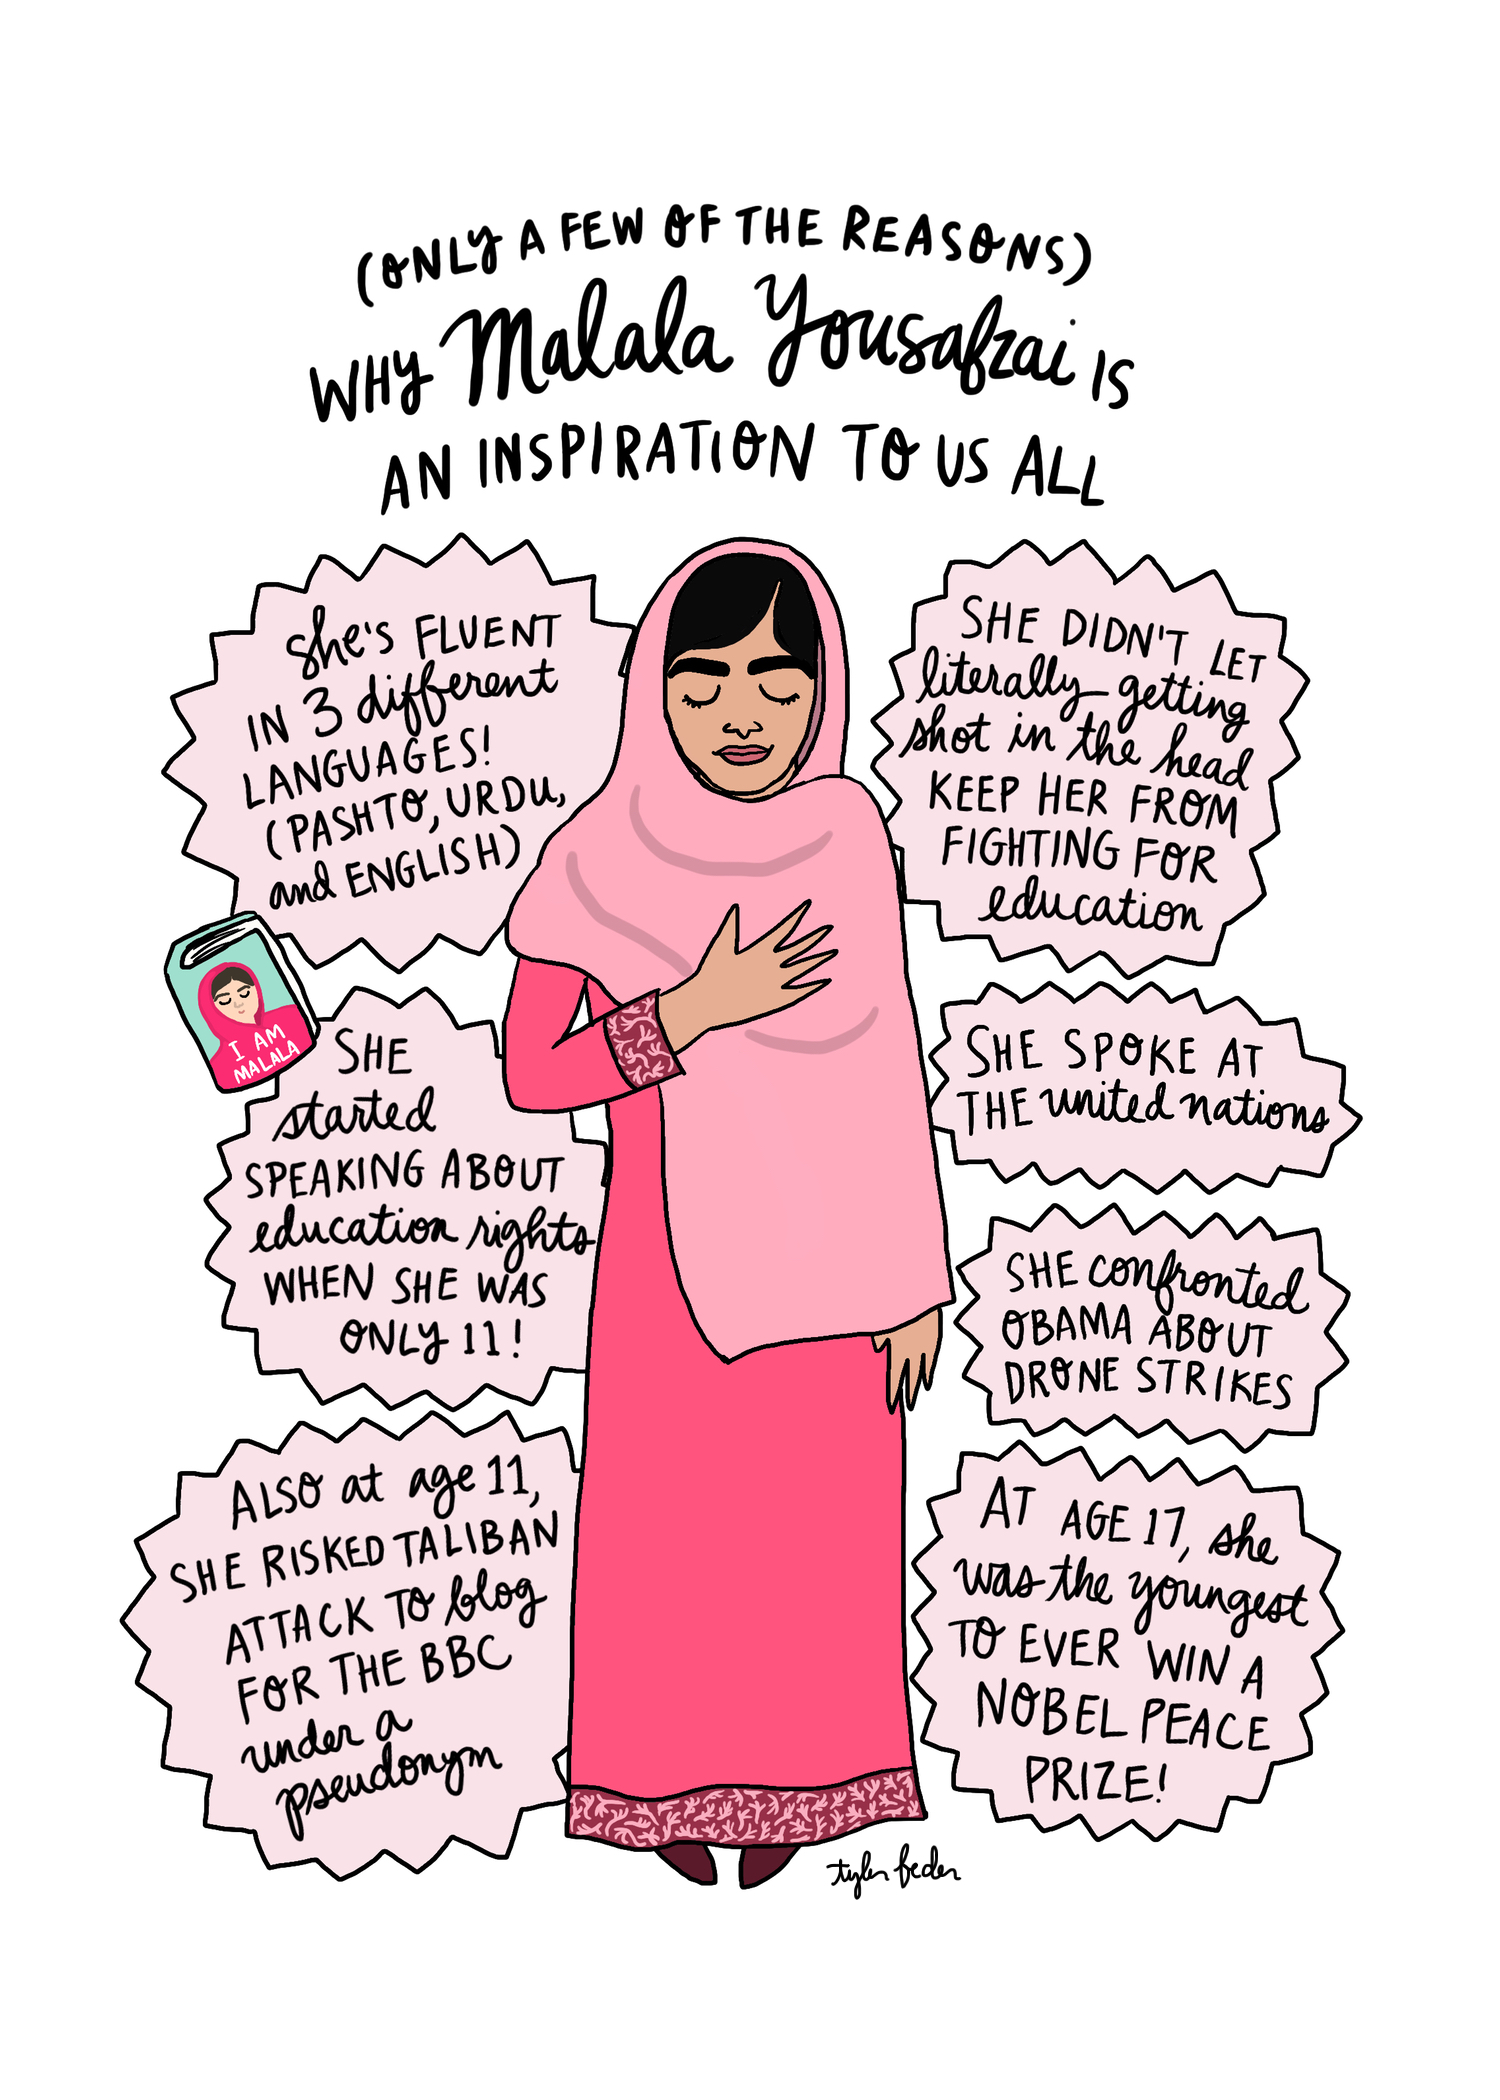 (ONLY A FEW OF THE REASONS)
WHY Malala Yousafzai IS
AN INSPIRATION TO US ALL
She's FLUENT
IN 3 different
LANGUAGES!
(PASHTO, URDU,
and ENGLISH)
I AM
MALALA
SHE
started
SPEAKING ABOUT
education rights
WHEN SHE WAS
ONLY 11!
ALSO at age 11,
SHE RISKED TALIBAN
ATTACK TO blog
FOR THE BBC
under a
pseudonym
SHE DIDN'T LET
literally getting
shot in the head
KEEP HER FROM
FIGHTING FOR
education
SHE SPOKE AT
THE united nations
SHE confronted
OBAMA ABOUT
DRONE STRIKES
AT AGE 17, she
was the youngest
TO EVER WIN A
NOBEL PEACE
PRIZE!
tyler feder